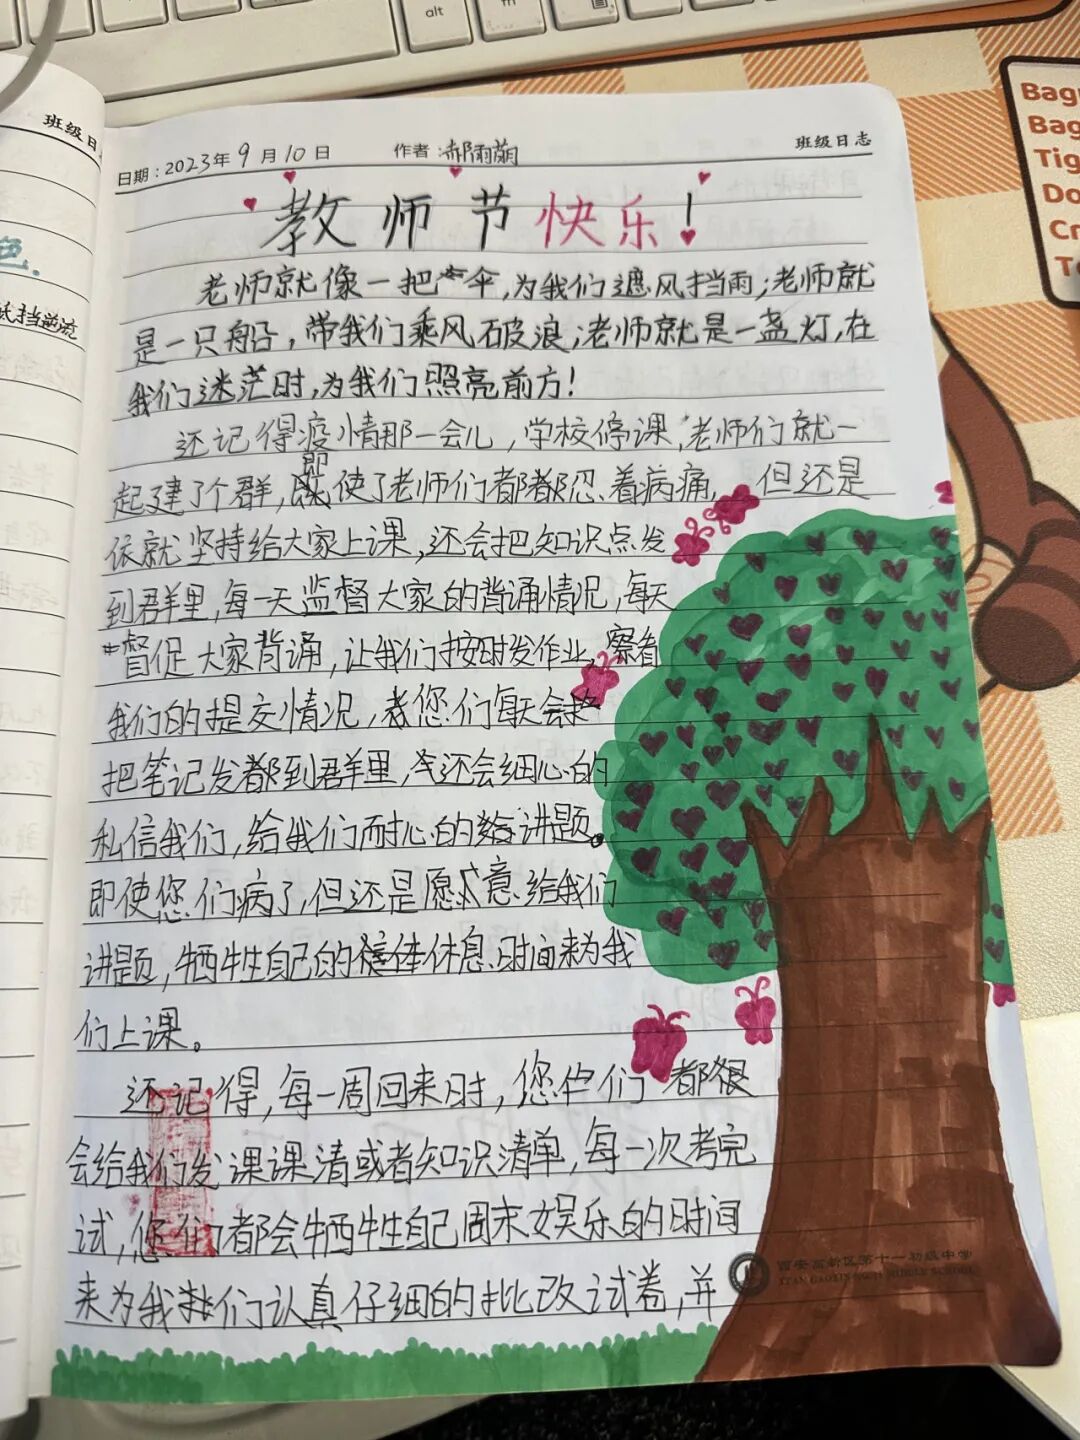 alt
fn
班级日
色.
挡逆流
Bag
Bag
Tig
Do
Cr
To
日期：2023年9月10日 作者：郝雨萌 班级日志
教师节快乐！
老师就像一把伞，为我们遮风挡雨；老师就
是一只船，带我们乘风破浪；老师就是一盏灯，在
我们迷茫时，为我们照亮前方！
还记得疫情那一会儿，学校停课，老师们就一
起建了个群，即使了老师们都都忍着病痛，但还是
依就坚持给大家上课，还会把知识点发
到群里，每一天监督大家的背诵情况，每天
督促大家背诵，让我们按时发作业，察看
我们的提交情况，您们每天会
把笔记发都到群里，还会细心的
私信我们，给我们耐心的讲题。
即使您们病了，但还是愿意给我们
讲题，牺牲自己的休息时间来为我
们上课。
还记得，每一周回来时，您们都很
会给我们发课课清或者知识清单，每一次考完
试，您们都会牺牲自己周末娱乐的时间
来为我们认真仔细的批改试卷，并
西安高新区第十一初级中学